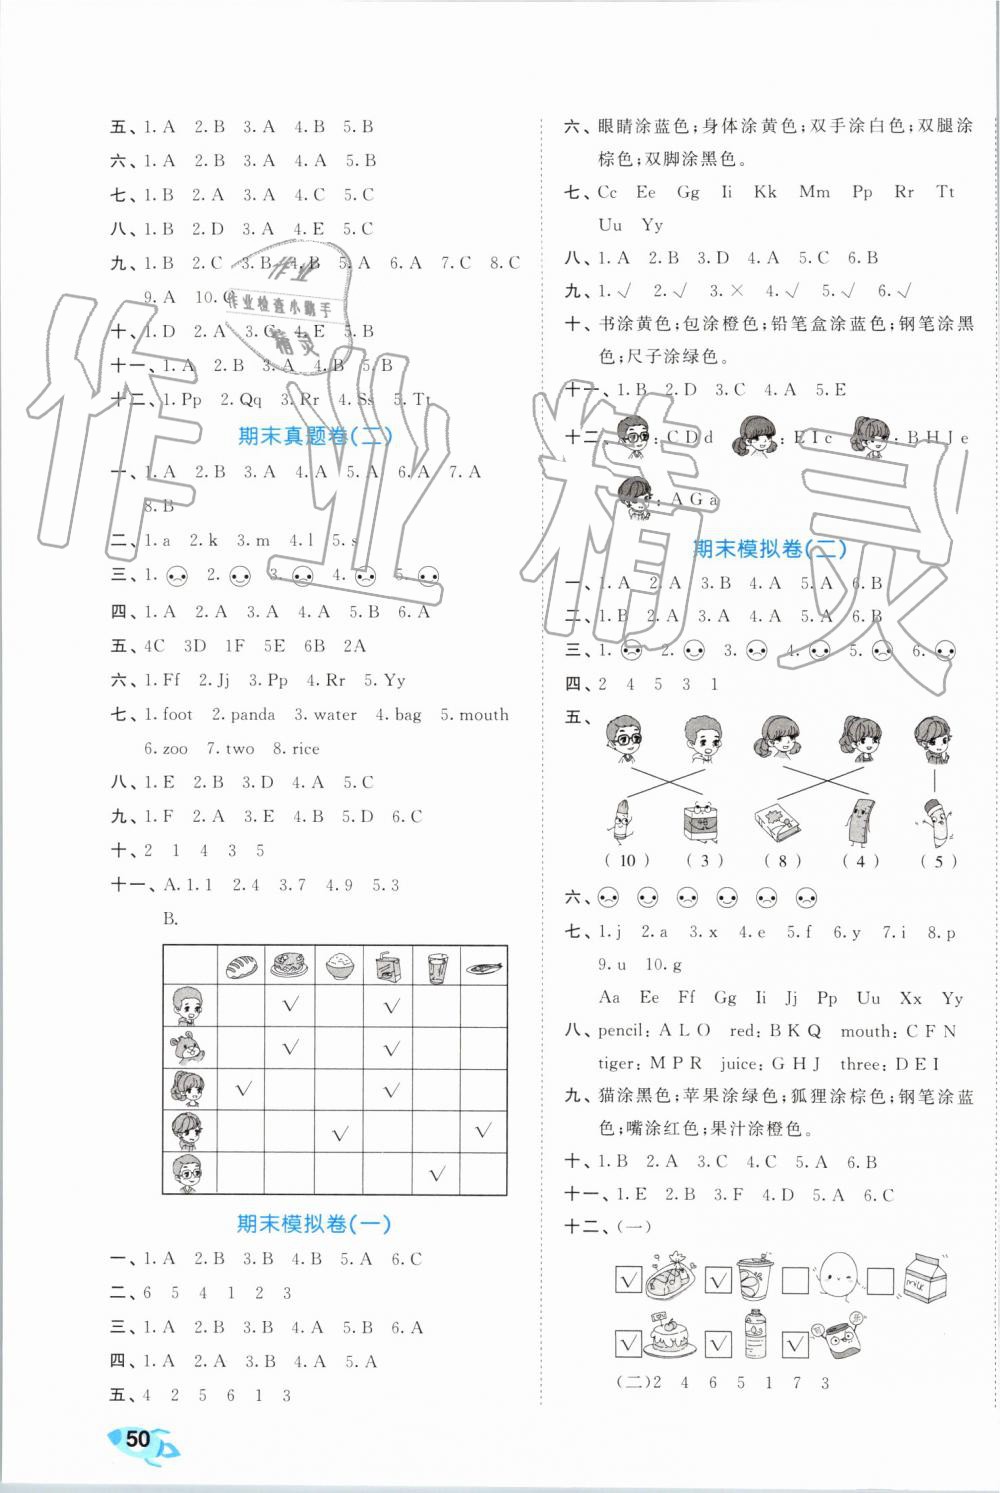 五、1. A 2. B 3. A 4. B 5. B
六、1. A 2. B 3. A 4. A 5. B
七、1. B 2. A 3. A 4. C 5. C
八、1. B 2. D 3. A 4. E 5. C
九、1. B 2. C 3. B 4. B 5. A 6. A 7. C 8. C
9. A 10. C
十、1. D 2. A 3. C 4. E 5. B
十一、1. A 2. B 3. A 4. B 5. B
十二、1. Pp 2. Qq 3. Rr 4. Ss 5. Tt
期末真题卷(二)
一、1. A 2. B 3. A 4. A 5. A 6. A 7. A
8. B
二、1. a 2. k 3. m 4. l 5. s
三、1. 2. 3. 4. 5.
四、1. A 2. A 3. A 4. A 5. B 6. A
五、4C 3D 1F 5E 6B 2A
六、1. Ff 2. Jj 3. Pp 4. Rr 5. Yy
七、1. foot 2. panda 3. water 4. bag 5. mouth
6. zoo 7. two 8. rice
八、1. E 2. B 3. D 4. A 5. C
九、1. F 2. A 3. E 4. B 5. D 6. C
十、2 1 4 3 5
十一、A. 1. 1 2. 4 3. 7 4. 9 5. 3
B.
√ √
√ √
√ √
√ √
√
期末模拟卷(一)
一、1. A 2. B 3. B 4. B 5. A 6. C
二、6 5 4 1 2 3
三、1. A 2. B 3. B 4. A 5. B 6. A
四、1. A 2. A 3. A 4. B 5. A
五、4 2 5 6 1 3
50
六、眼睛涂蓝色;身体涂黄色;双手涂白色;双腿涂
棕色;双脚涂黑色。
七、Cc Ee Gg Ii Kk Mm Pp Rr Tt
Uu Yy
八、1. A 2. B 3. D 4. A 5. C 6. B
九、1. √ 2. √ 3. × 4. √ 5. √ 6. √
十、书涂黄色;包涂橙色;铅笔盒涂蓝色;钢笔涂黑
色;尺子涂绿色。
十一、1. B 2. D 3. C 4. A 5. E
十二、: C D d : E I c : B H J e
: A G a
期末模拟卷(二)
一、1. A 2. A 3. B 4. A 5. A 6. B
二、1. B 2. A 3. A 4. A 5. A 6. B
三、1. 2. 3. 4. 5. 6.
四、2 4 5 3 1
五、
(10) (3) (8) (4) (5)
六、
七、1. j 2. a 3. x 4. e 5. f 6. y 7. i 8. p
9. u 10. g
Aa Ee Ff Gg Ii Jj Pp Uu Xx Yy
八、pencil: A L O red: B K Q mouth: C F N
tiger: M P R juice: G H J three: D E I
九、猫涂黑色;苹果涂绿色;狐狸涂棕色;钢笔涂蓝
色;嘴涂红色;果汁涂橙色。
十、1. B 2. A 3. C 4. C 5. A 6. B
十一、1. E 2. B 3. F 4. D 5. A 6. C
十二、(一)
√ √ milk
√ √ √
(二)2 4 6 5 1 7 3
作业精灵
作业
作业检查小助手
精灵